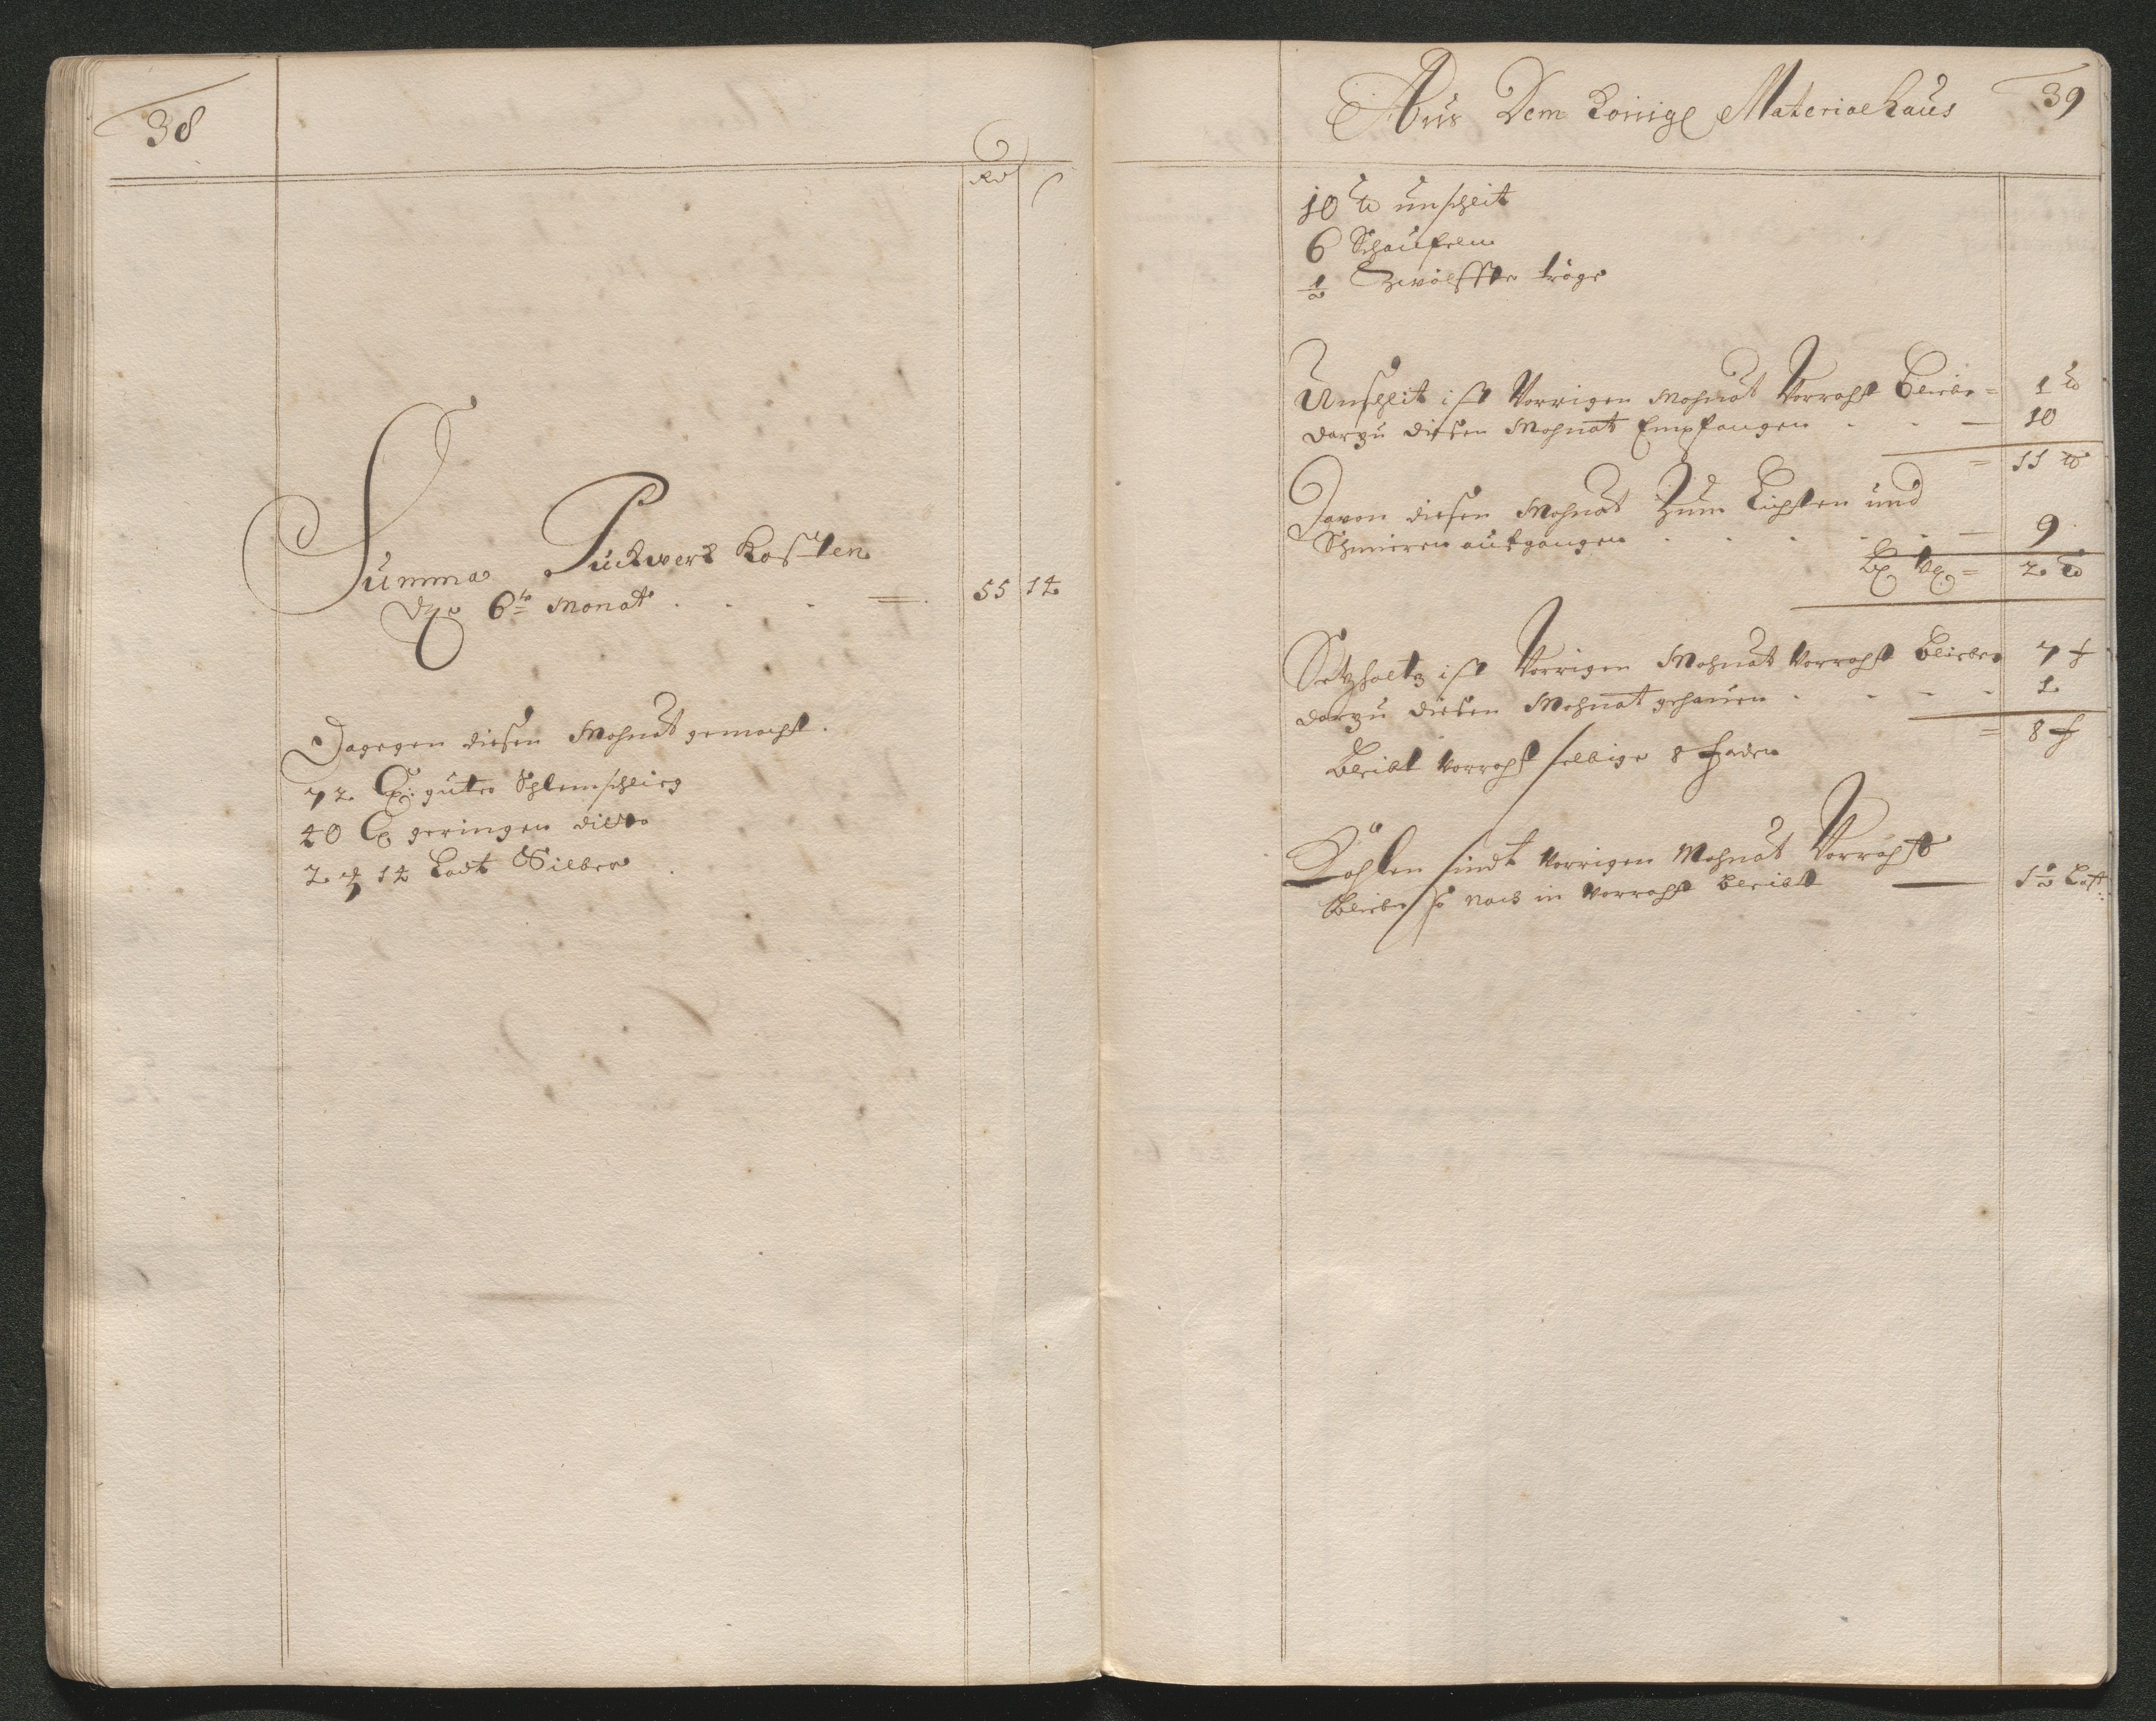 38
Rd
Summa Puckwerk Kosten
dße 6te Monat . . . = 55 14
Dagegen diesen Mohnat gemacht.
72 C: guter Schlemschlieg
40 C geringen ditto
2 14 Lodt Silber
Aus Dem Königl Materialhaus 39
10 ℔ unschlit
6 Schaufeln
½ Zwölffte tröge
Unschlit ist Vorrigen Mohnat Vorraht blieben = 1 ℔
darzu diesen Mohnat Empfangen - - - 10
= 11 ℔
Davon diesen Mohnat Zum Lichten und
Schmieren aufgangen . . . . - 9
= 2 ℔
Setzholtz ist Vorrigen Mohnat Vorraht blieben 7 f
darzu diesen Mohnat gehauen - - - - 1
= 8 f
Bleibt Vorraht selbige 8 Faden
Kohlen sindt Vorrigen Mohnat Vorraht
blieben so noch in Vorraht bleibt — 1½ Last